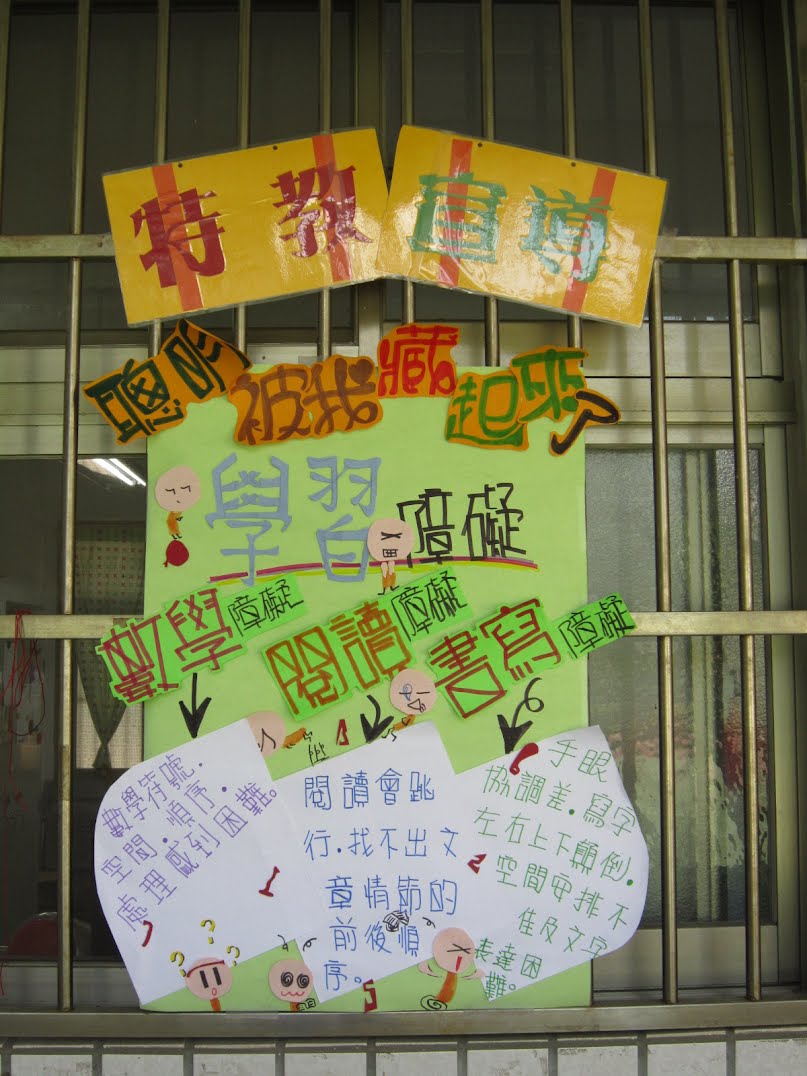 特教宣導
聰明被我藏起來了
學習障礙
數學障礙
閱讀障礙
書寫障礙
數學符號.
空間.順序.
處理感到困難。
閱讀會跳
行.找不出文
章情節的
前後順
序。
手眼
協調差.寫字
左右上下顛倒.
空間安排不
佳及文字
表達困
難。